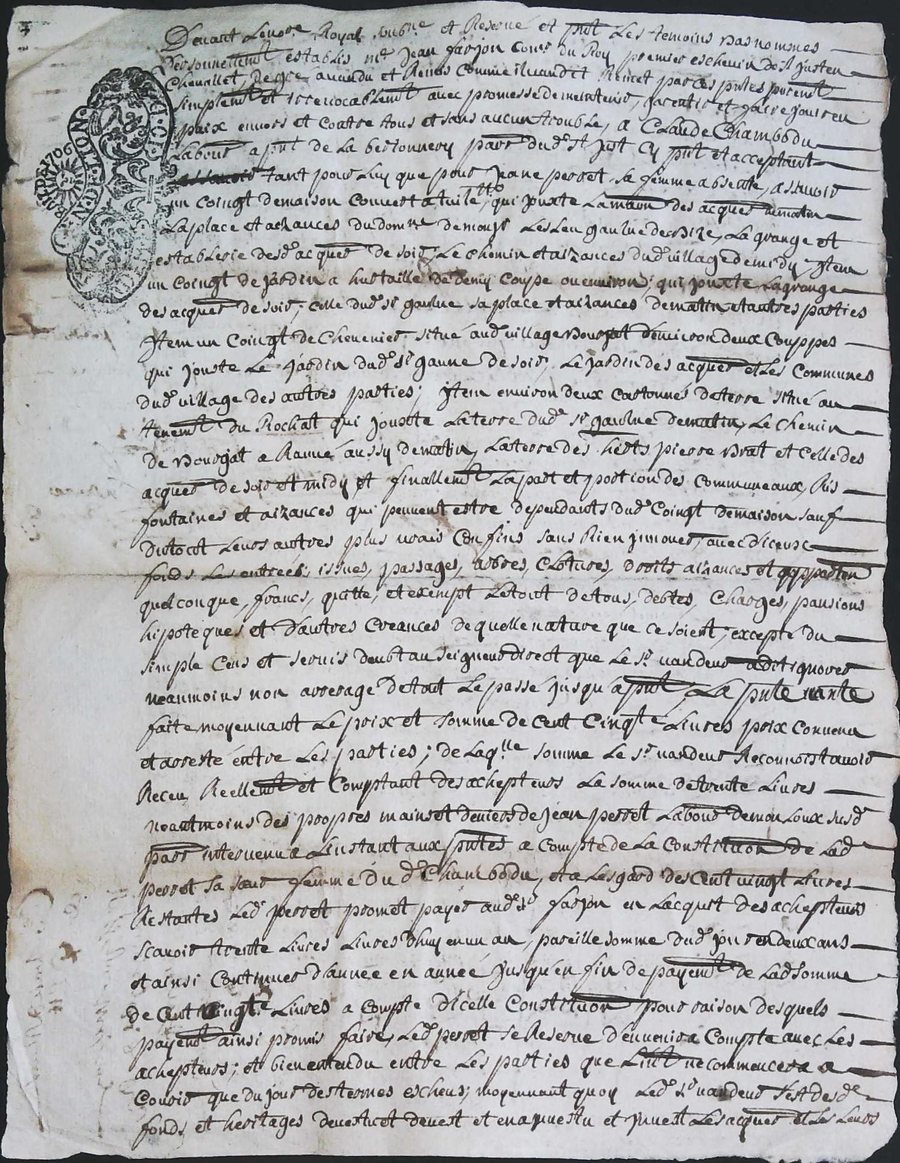 Devant Le nore Royal soubne et Reserve et pnt Les temoins bas nommes
Personnellemt establis mr Jean farjon Conser du Roy premier eschevin de st Justen
Chevallet Lequel a vandu et Rend Comme il vand et Remet par ces pntes puremt
simplemt et irrevocablemt avec promesse de maintenir, garentir et faire jouir en
paix envers et Contre tous et sans aucun trouble, a Claude Chambodu
Labour a pnt de la bessonnery parr dud st Just Cy pnt et acceptant
tant pour Luy que pour Jeane perret sa femme absente, assavoir
un Coingt de maison Couvert a tuille, qui Jouxte La maion des acques de matin
La place et aizances du dome de monsr Le Sr gaulne de bize, La grange et
establerie desd acques de soir, Le Chemin et aizances dud village de midy, Item
un Coingt de Jardin a hustaille de demy Coupe ou environ, qui Jouxte La grange
des acques de soir, Celle dud sr gaulne sa place et aizances de matin et autres parties
Item un Coingt de Cheneviere situé aud village Bourgat d'environ deux Couppes
qui Jouste Le Jardin dud sr gaune de soir, Le Jardin des acques et Les Communes
dud village des autres parties; Item environ deux Cartonnés de terre situé au
tenemt du Rochat qui Jouxte La terre dud sr gaulne de matin, Le Chemin
de Bourgat a Ranne aussy de matin, La terre des hers pierre Brat et Celle des
acques de soir et midy et finallemt La part et portion des Communeaux, Ris
fontaines et aizances qui peuvent estre dependants dud Coingt de maison sauf
du tout Leurs autres plus vrais Confins sans Rien Jnnover, avec d'iceux
fonds Les entrées, issues, passages, arbres, Clotures, droits aizances et apparten
quelconque, francs, quitte, et exempt Le tout de tous, debtes, Charges, pansions
hipoteques et d'autres Creances de quelle nature que ce soient, excepté du
simple Cens et servis deubt au seigneur direct que Le sr vandeur a dit ignorer
neanmoins non arrerage de tout Le passé Jusqu'a pnt, La pnte vante
faite moyennant Le prix et somme de Cent Cinqte Livres prix Convenu
et arresté entre Les parties; de Laqlle somme Le sr vandeur Reconnoist avoir
Receu Reellemt et Comptant des achepteurs La somme de trente Livres
neantmoins des propres mains et deniers de Jean perret Labour de monloux susd
parr intervenu a Linstant aux pntes a Compte de La Constituon de Lad
perret sa sœur femme du d Chambodu, et a Lesgard des Cent vingt Livres
Restantes Led perret promet payer aud sr farjon en Lacquit des achepteurs
scavoir trente Livres Livres d'huy en un an, pareille somme dud Jour en deux ans
et ainsi Continuer d'année en année Jusqu'en fin de payemt de Lad somme
de Cent vingt Livres a Compte d'icelle Constituon pour raison desquels
payemt ainsi promis faire, Led perret se Reserve d'en venir a Compte avec Les
achepteurs; et bien entendu entre Les parties que L'int ne commencera a
Courir que du Jour des termes escheus; moyennant quoy Led sr vandeur s'est desd
fonds et heritages devestu et devest et en a vestu et Jnvest Les acques et Les Leurs